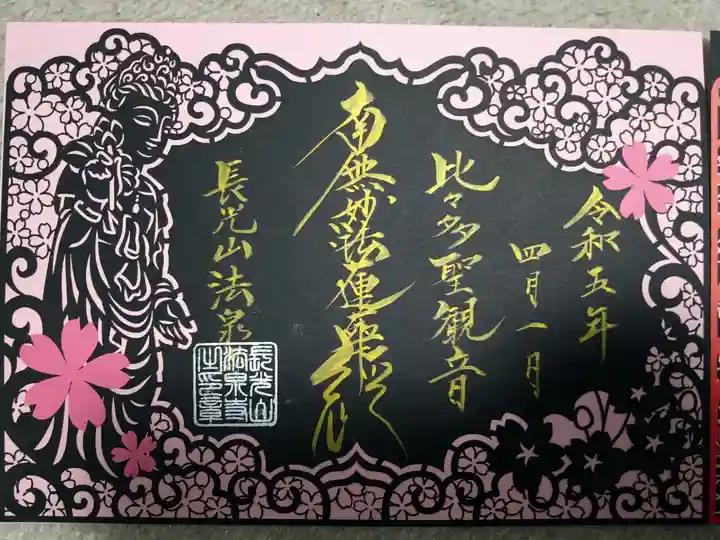 令和五年
四月一月
比々多聖観音
南無妙法蓮華経
長光山法泉
長光山
法泉寺
之印章